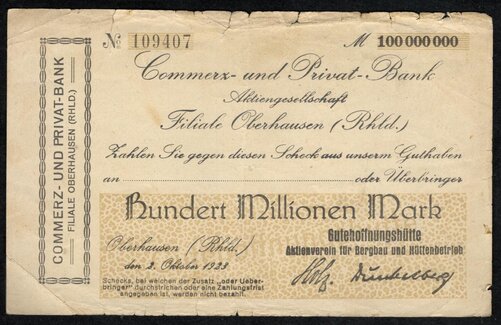 COMMERZ- UND PRIVAT-BANK
FILIALE OBERHAUSEN (RHLD.)
№ 109407
M 100 000 000
Commerz- und Privat-Bank
Aktiengesellschaft
Filiale Oberhausen (Rhld.)
Zahlen Sie gegen diesen Scheck aus unserm Guthaben
an oder Überbringer
Hundert Millionen Mark
Oberhausen (Rhld.)
den 2. Oktober 1923
Gutehoffnungshütte
Aktienverein für Bergbau und Hüttenbetrieb
Schecks, bei welchen der Zusatz „oder Ueber-
bringer" durchstrichen oder eine Zahlungsfrist
angegeben ist, werden nicht bezahlt.